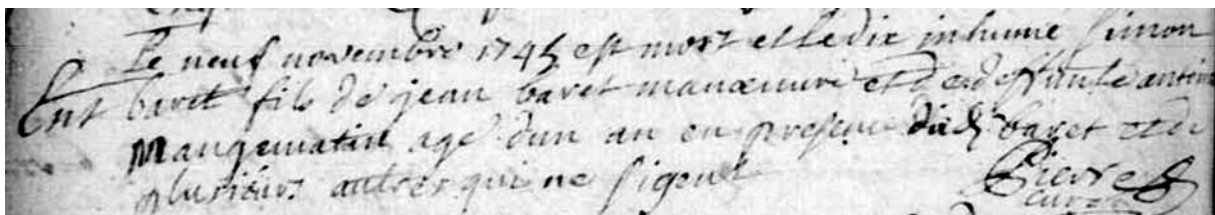 Le neuf novembre 1745 est mort et le dix inhumé Simon
Ent baret fils de jean baret manœuvre et de deffunte
Mangematin agé dun an en presence dud baret et de
plusieurs autres qui ne signent
Pierre
curé